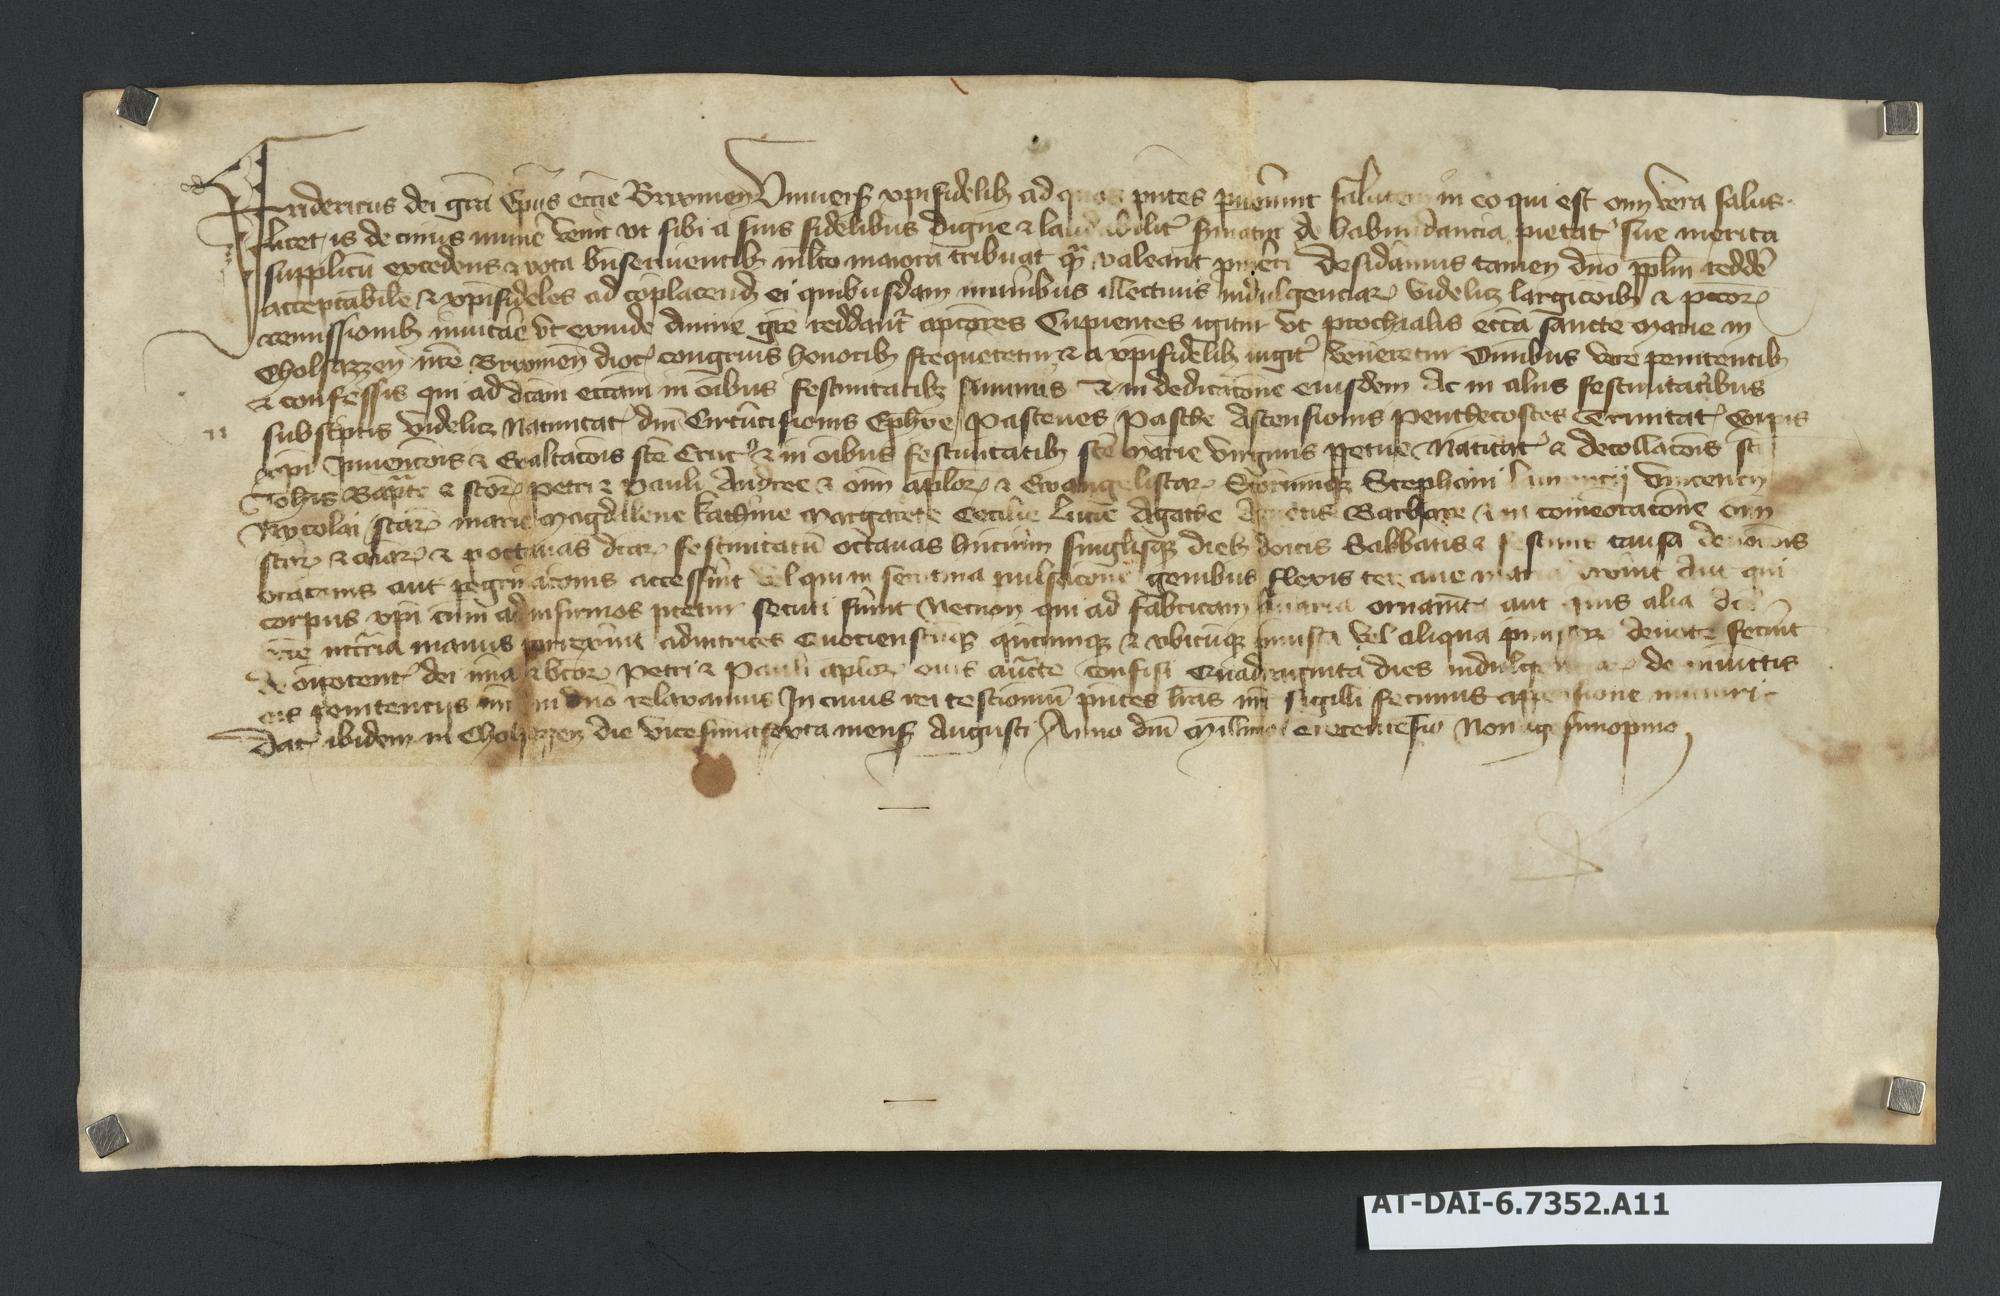 Fridericus dei gra Epus eccie Brixinen Vniuers xpifidelib ad quos pntes puenint salutem in eo qui est oim vera salus
Licet is de cuius mune venit vt sibi a suis fidelibus digne & laudabilit seruiatur de habundancia pietat sue merita
supplicu excedens & vota bnseruientib mlto maiora tribuat q valeant pmeri Desidamus tamen dno pplm redde
acceptabile & xpifideles ad coplacend ei quibusdam munibus illectiuis indulgenciar videlicz largicoib & pccor
remissionib inuitae vt exinde diuine gre reddant apciores Cupientes igitur vt prochialis eccia sancte Marie in
Cholsazzen nre Brixinen dioc congruis honorib frequetetur & a xpifidelib iugit veneretur Omnibus vere penitentib
& confessis qui ad dcam ecciam in oibus festiuitatibz summis & in dedicacone eiusdem Ac in aliis festiuitatibus
subscptis videlicz Natiuitat dni Circucisionis Ephye Pasceues Pasche Ascensionis Penthecostes Trinitat Corpis
xpi Inuencois & Exaltacois sce Cruc & in oibus festiuitatib sce Marie virginis ppetue Natiuitat & decollacois sci
Johis Bapte & scor Petri & Pauli Andree & oim aplor & Ewangelistar Scorumqz Stephani Laurencij Vincencij
Nycolai scar Marie Magdalene Katherine Margarete Cecilie Lucie Agathe Agnetis Barbare & in comeoracone oim
scor & aiar & p octauas dcar festiuitatu octauas hncium singlisqz dieb dnicis Sabbatis & festiuis causa deuocois
oracionis aut pegrinacionis accessint vel qui in serotina pulsacone genibus flexis ter aue maria dixint Aut qui
corpus xpi cum ad infirmos ptetur secuti fuint Necnon qui ad fabricam luminaria ornamta aut quis alia dce
eccie nccria manus porrexint adiutrices Quociensciqz qucumqz & vbicuqz pmissa vel aliqua pmissor deuote fecint
de oipotent dei mia & bcor Petri & Pauli aplor eius aucte confisi Quadraginta dies indulgenciar de iniuctis
eis penitencijs im in dno relaxamus In cuius rei testimoiu pntes lras nri sigilli fecimus appensione muniri
Dat ibidem in Cholsazzen die vicesimasexta mens Augusti Anno dni Millimo Trecentesio Nonagesimoprimo
AT-DAI-6.7352.A11